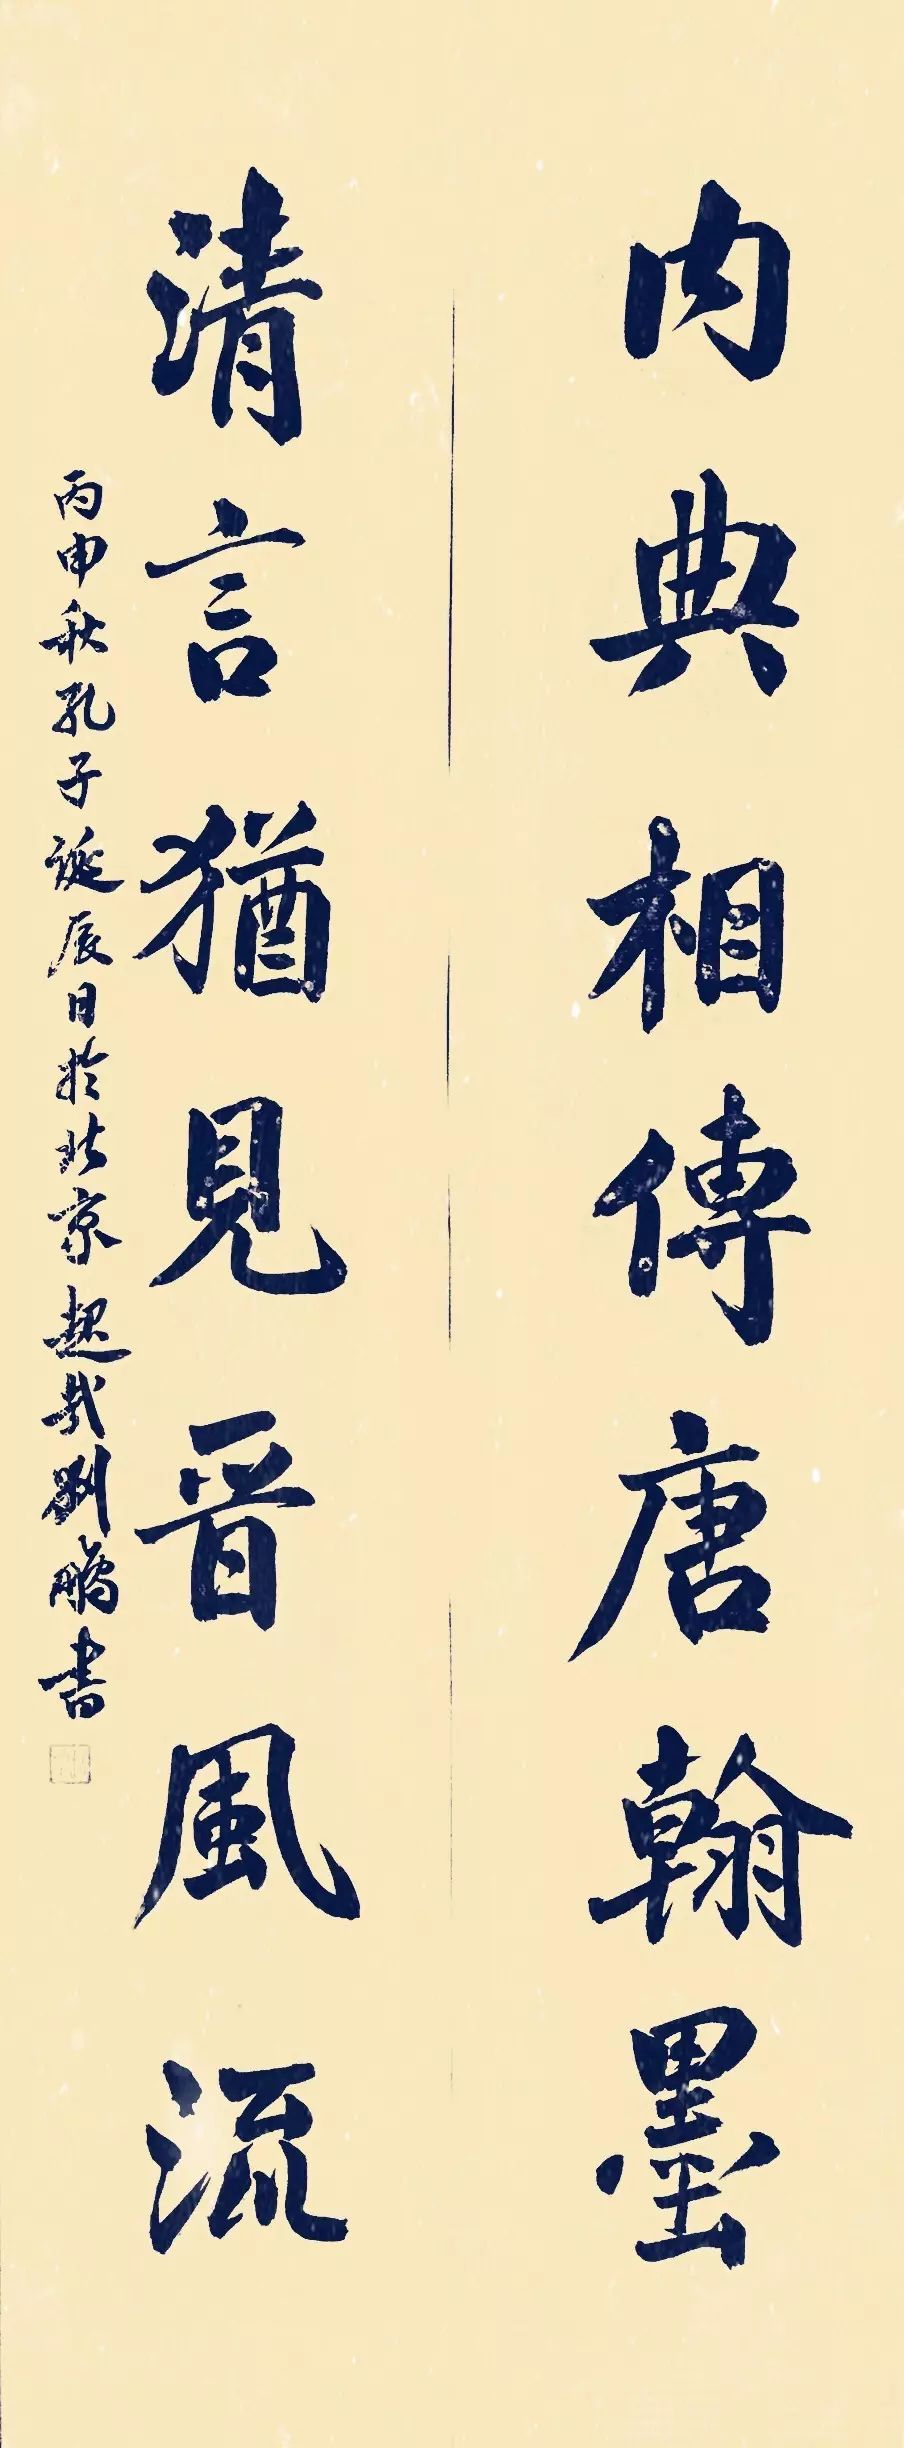 内典相傳唐翰墨
清言猶見晋風流
丙申秋孔子誕辰日於北京超哉劉鵬書